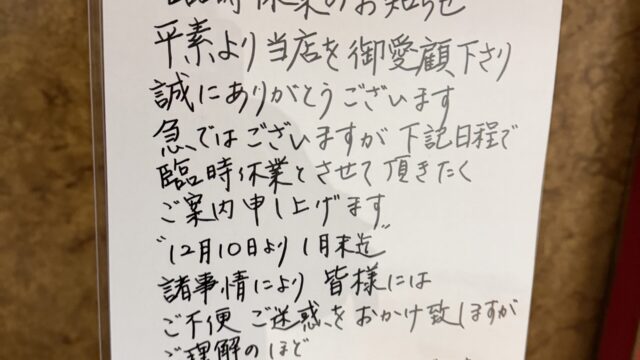 臨時休業のお知らせ
平素より当店を御愛顧下さり
誠にありがとうございます
急ではございますが下記日程で
臨時休業とさせて頂きたく
ご案内申し上げます
"12月10日より1月末迄"
諸事情により皆様には
ご不便ご迷惑をおかけ致しますが
ご理解のほど